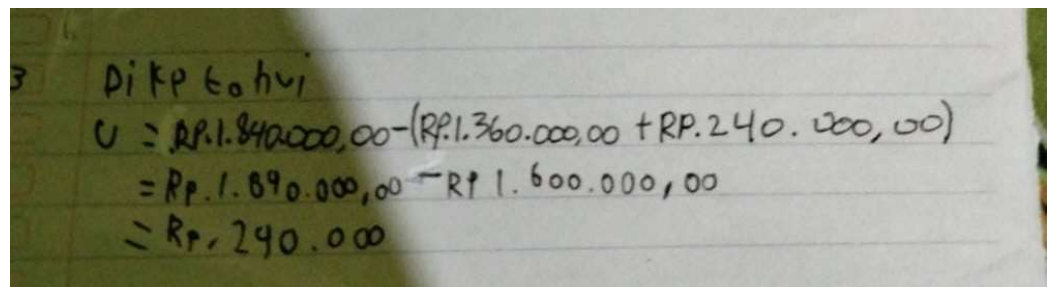 3 Diketahui
U = RP.1.840.000,00-(RP.1.360.000,00 + RP.240.000,00)
= Rp.1.840.000,00 - RP 1.600.000,00
= Rp. 240.000